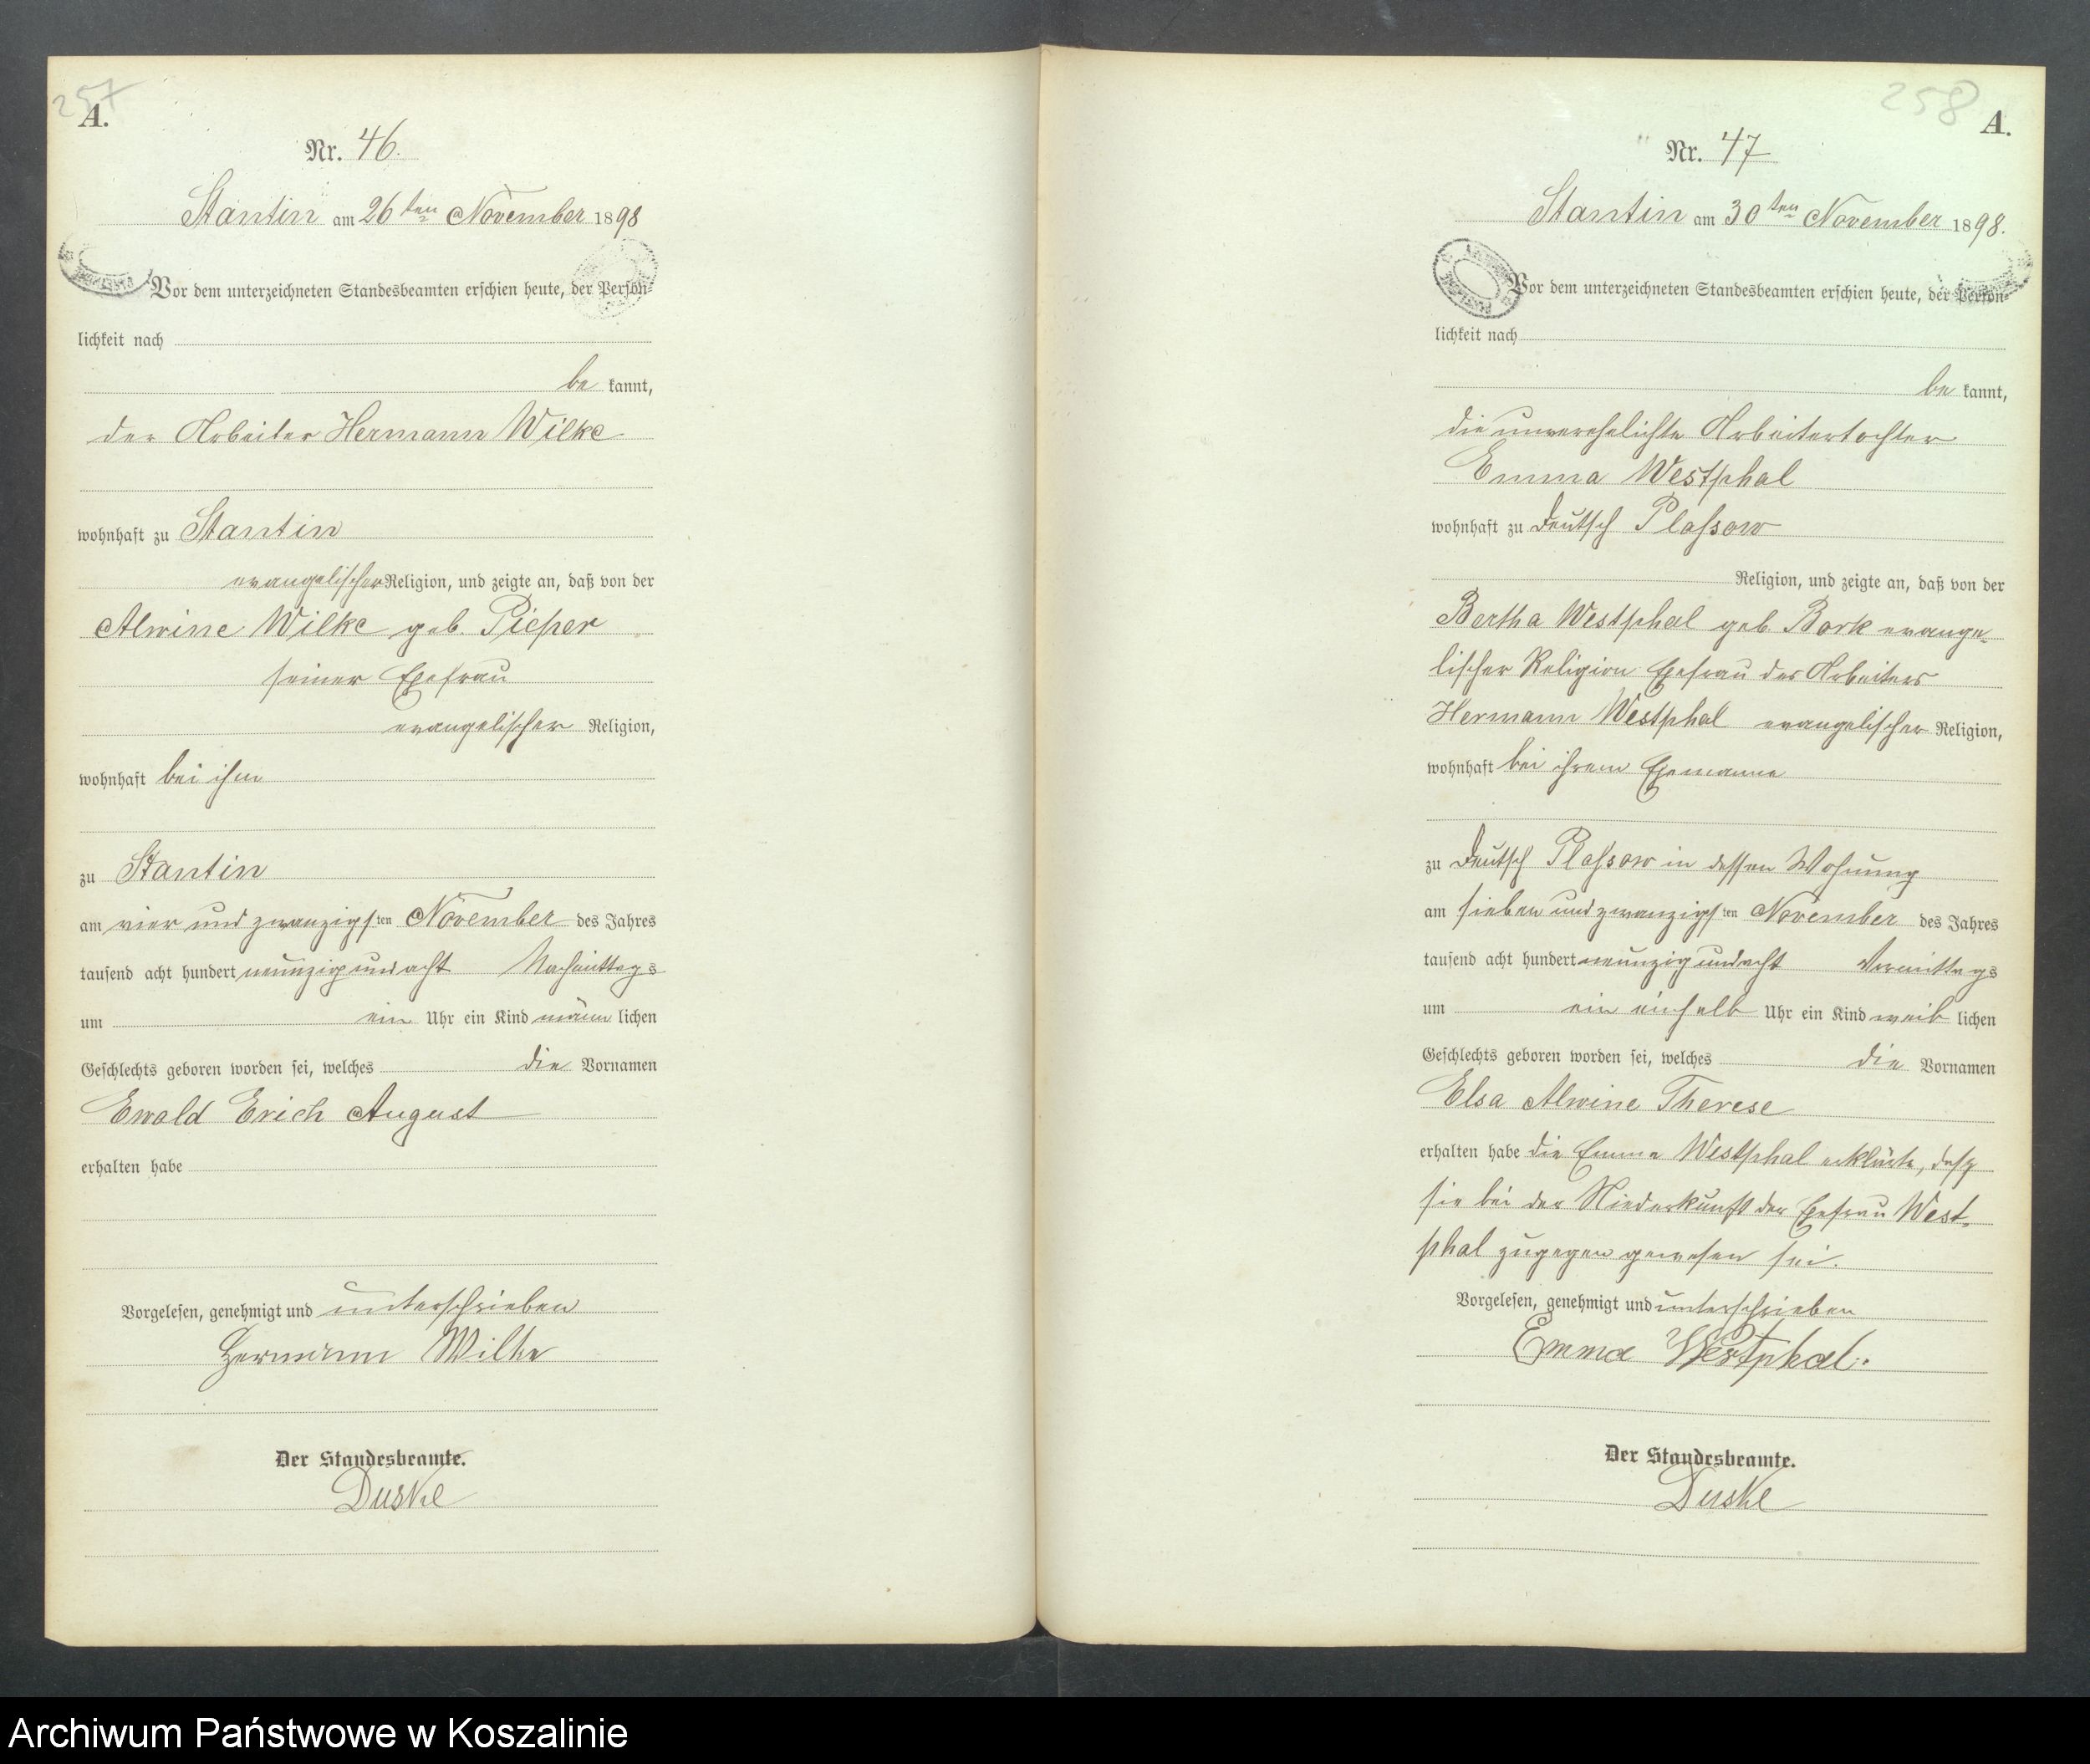 257
A.
Nr. 46.
Stantin am 26ten November 1898
Vor dem unterzeichneten Standesbeamten erschien heute, der Persön-
lichkeit nach
be kannt,
der Arbeiter Hermann Wilke
wohnhaft zu Stantin
evangelischer Religion, und zeigte an, daß von der
Alwine Wilke geb. Pieper
seiner Ehefrau
evangelischer Religion,
wohnhaft bei ihm
zu Stantin
am vier und zwanzigsten November des Jahres
tausend acht hundert neunzig und acht Nachmittags
um ein Uhr ein Kind männlichen
Geschlechts geboren worden sei, welches die Vornamen
Ewald Erich August
erhalten habe
Vorgelesen, genehmigt und unterschrieben
Hermann Wilke
Der Standesbeamte.
Duske
258
A.
Nr. 47
Stantin am 30ten November 1898.
Vor dem unterzeichneten Standesbeamten erschien heute, der Persön-
lichkeit nach
be kannt,
die unverehelichte Arbeitertochter
Emma Westphal
wohnhaft zu Deutsch Plassow
Religion, und zeigte an, daß von der
Bertha Westphal geb. Bork evange-
lischer Religion Ehefrau des Arbeiters
Hermann Westphal evangelischer Religion,
wohnhaft bei ihrem Ehemanne
zu Deutsch Plassow in dessen Wohnung
am sieben und zwanzigsten November des Jahres
tausend acht hundert neunzig und acht Vormittags
um ein einhalb Uhr ein Kind weiblichen
Geschlechts geboren worden sei, welches die Vornamen
Elsa Alwine Therese
erhalten habe die Emma Westphal erklärte, daß
sie bei der Niederkunft der Ehefrau West-
phal zugegen gewesen sei.
Vorgelesen, genehmigt und unterschrieben
Emma Westphal.
Der Standesbeamte.
Duske
Archiwum Państwowe w Koszalinie